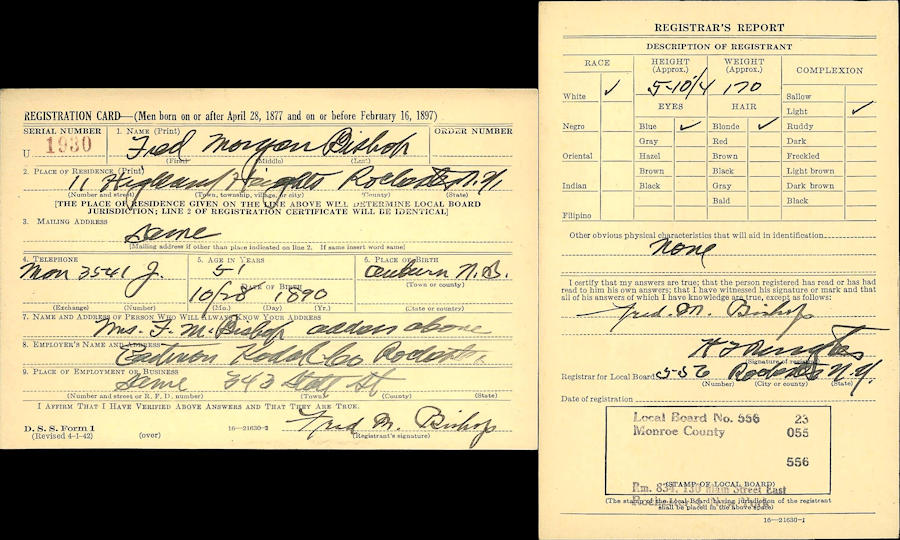 REGISTRATION CARD—(Men born on or after April 28, 1877 and on or before February 16, 1897)
SERIAL NUMBER
1. NAME (Print)
ORDER NUMBER
U 1930
Fred Morgan Bishop
(First) (Middle) (Last)
2. PLACE OF RESIDENCE (Print)
11 Highland Heights Rochester N.Y.
(Number and street) (Town, township, village, or city) (County) (State)
[THE PLACE OF RESIDENCE GIVEN ON THE LINE ABOVE WILL DETERMINE LOCAL BOARD
JURISDICTION; LINE 2 OF REGISTRATION CERTIFICATE WILL BE IDENTICAL]
3. MAILING ADDRESS
Same
[Mailing address if other than place indicated on line 2. If same insert word same]
4. TELEPHONE
5. AGE IN YEARS
6. PLACE OF BIRTH
Mon 3541 J.
51
N.B.
(Town or county)
DATE OF BIRTH
10/28 1890
(Exchange) (Number) (Mo.) (Day) (Yr.) (State or country)
7. NAME AND ADDRESS OF PERSON WHO WILL ALWAYS KNOW YOUR ADDRESS
Mrs. F. M. Bishop address above
8. EMPLOYER'S NAME AND ADDRESS
Eastman Kodak Co Rochester
9. PLACE OF EMPLOYMENT OR BUSINESS
Same 343 State St
(Number and street or R. F. D. number) (Town) (County) (State)
I AFFIRM THAT I HAVE VERIFIED ABOVE ANSWERS AND THAT THEY ARE TRUE.
D. S. S. Form 1
(Revised 4-1-42) (over) 16—21630-2
Fred M. Bishop
(Registrant's signature)
REGISTRAR'S REPORT
DESCRIPTION OF REGISTRANT
RACE
HEIGHT (Approx.)
WEIGHT (Approx.)
COMPLEXION
5-10 1/4 170
White ✓
Sallow
EYES HAIR
Light ✓
Negro
Blue ✓ Blonde ✓ Ruddy
Gray Red Dark
Oriental
Hazel Brown Freckled
Brown Black Light brown
Indian
Black Gray Dark brown
Bald Black
Filipino
Other obvious physical characteristics that will aid in identification
None
I certify that my answers are true; that the person registered has read or has had
read to him his own answers; that I have witnessed his signature or mark and that
all of his answers of which I have knowledge are true, except as follows:
Fred. M. Bishop
(Signature of registrar)
Registrar for Local Board 556 Rochester N.Y.
(Number) (City or county) (State)
Date of registration
Local Board No. 556 23
Monroe County 055
556
(STAMP OF LOCAL BOARD)
Rm. 834, 130 Main Street East
(The stamp of the Local Board having jurisdiction of the registrant
shall be placed in the above space)
16—21630-1